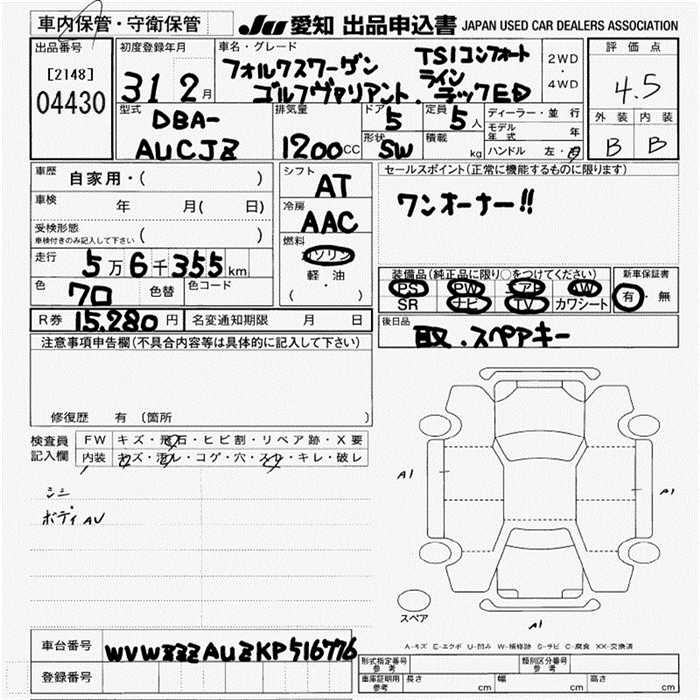 車内保管・守衛保管
JU 愛知 出品申込書 JAPAN USED CAR DEALERS ASSOCIATION
出品番号
[2148]
04430
初度登録年月
31 2月
車名・グレード
フォルクスワーゲン
ゴルフヴァリアント
TSIコンフォート
ライン
テックED
2WD
・
4WD
評価点
4.5
外装 内装
B B
型式
DBA-
AUCJZ
排気量
1200CC
ドア
5
形状
SW
定員
5人
積載
kg
ディーラー・並行
モデル年式 年
ハンドル 左・右
車歴 自家用・( )
車検 年 月( 日)
受検形態
車検付きのみ記入して下さい ( )
走行 5万6千355km
色 クロ 色替 色コード
シフト
AT
冷房
AAC
燃料
ガソリン
軽・油
( )
セールスポイント(正常に機能するものに限ります)
ワンオーナー!!
装備品(純正品に限り○をつけてください)
PS PW エアB AW
SR ナビ TV カワシート
新車保証書
有・無
R券 15,280円 名変通知期限 月 日
後日品
取.スペアキー
注意事項申告欄(不具合内容等は具体的に記入して下さい)
修復歴 有 〔箇所
検査員
記入欄
FW キズ・飛石・ヒビ割・リペア跡・X要
内装 キズ・汚レ・コゲ・穴・スレ・キレ・破レ
シミ
ボディAU
A1
A1
A1
スペア
A-キズ E-エクボ U-凹み W-補修跡 S-サビ C-腐食 XX-交換済
車台番号 WVWZZZAUZKP516776
登録番号
形式指定番号
参考
類別区分番号
参考
車庫証明用
参考
長さ cm 幅 cm 高さ cm